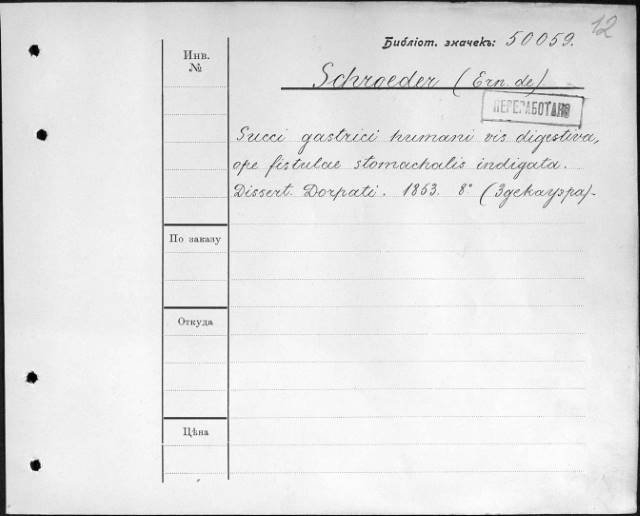 12
Библіот. значекъ: 50059.
Инв.
№
Schroeder (Ern. de)
ПЕРЕРАБОТАНО
Succi gastrici humani vis digestiva,
ope fistulae stomachalis indigata.
Dissert. Dorpati. 1853. 8° (Здекауэра)-
По заказу
Откуда
Цѣна